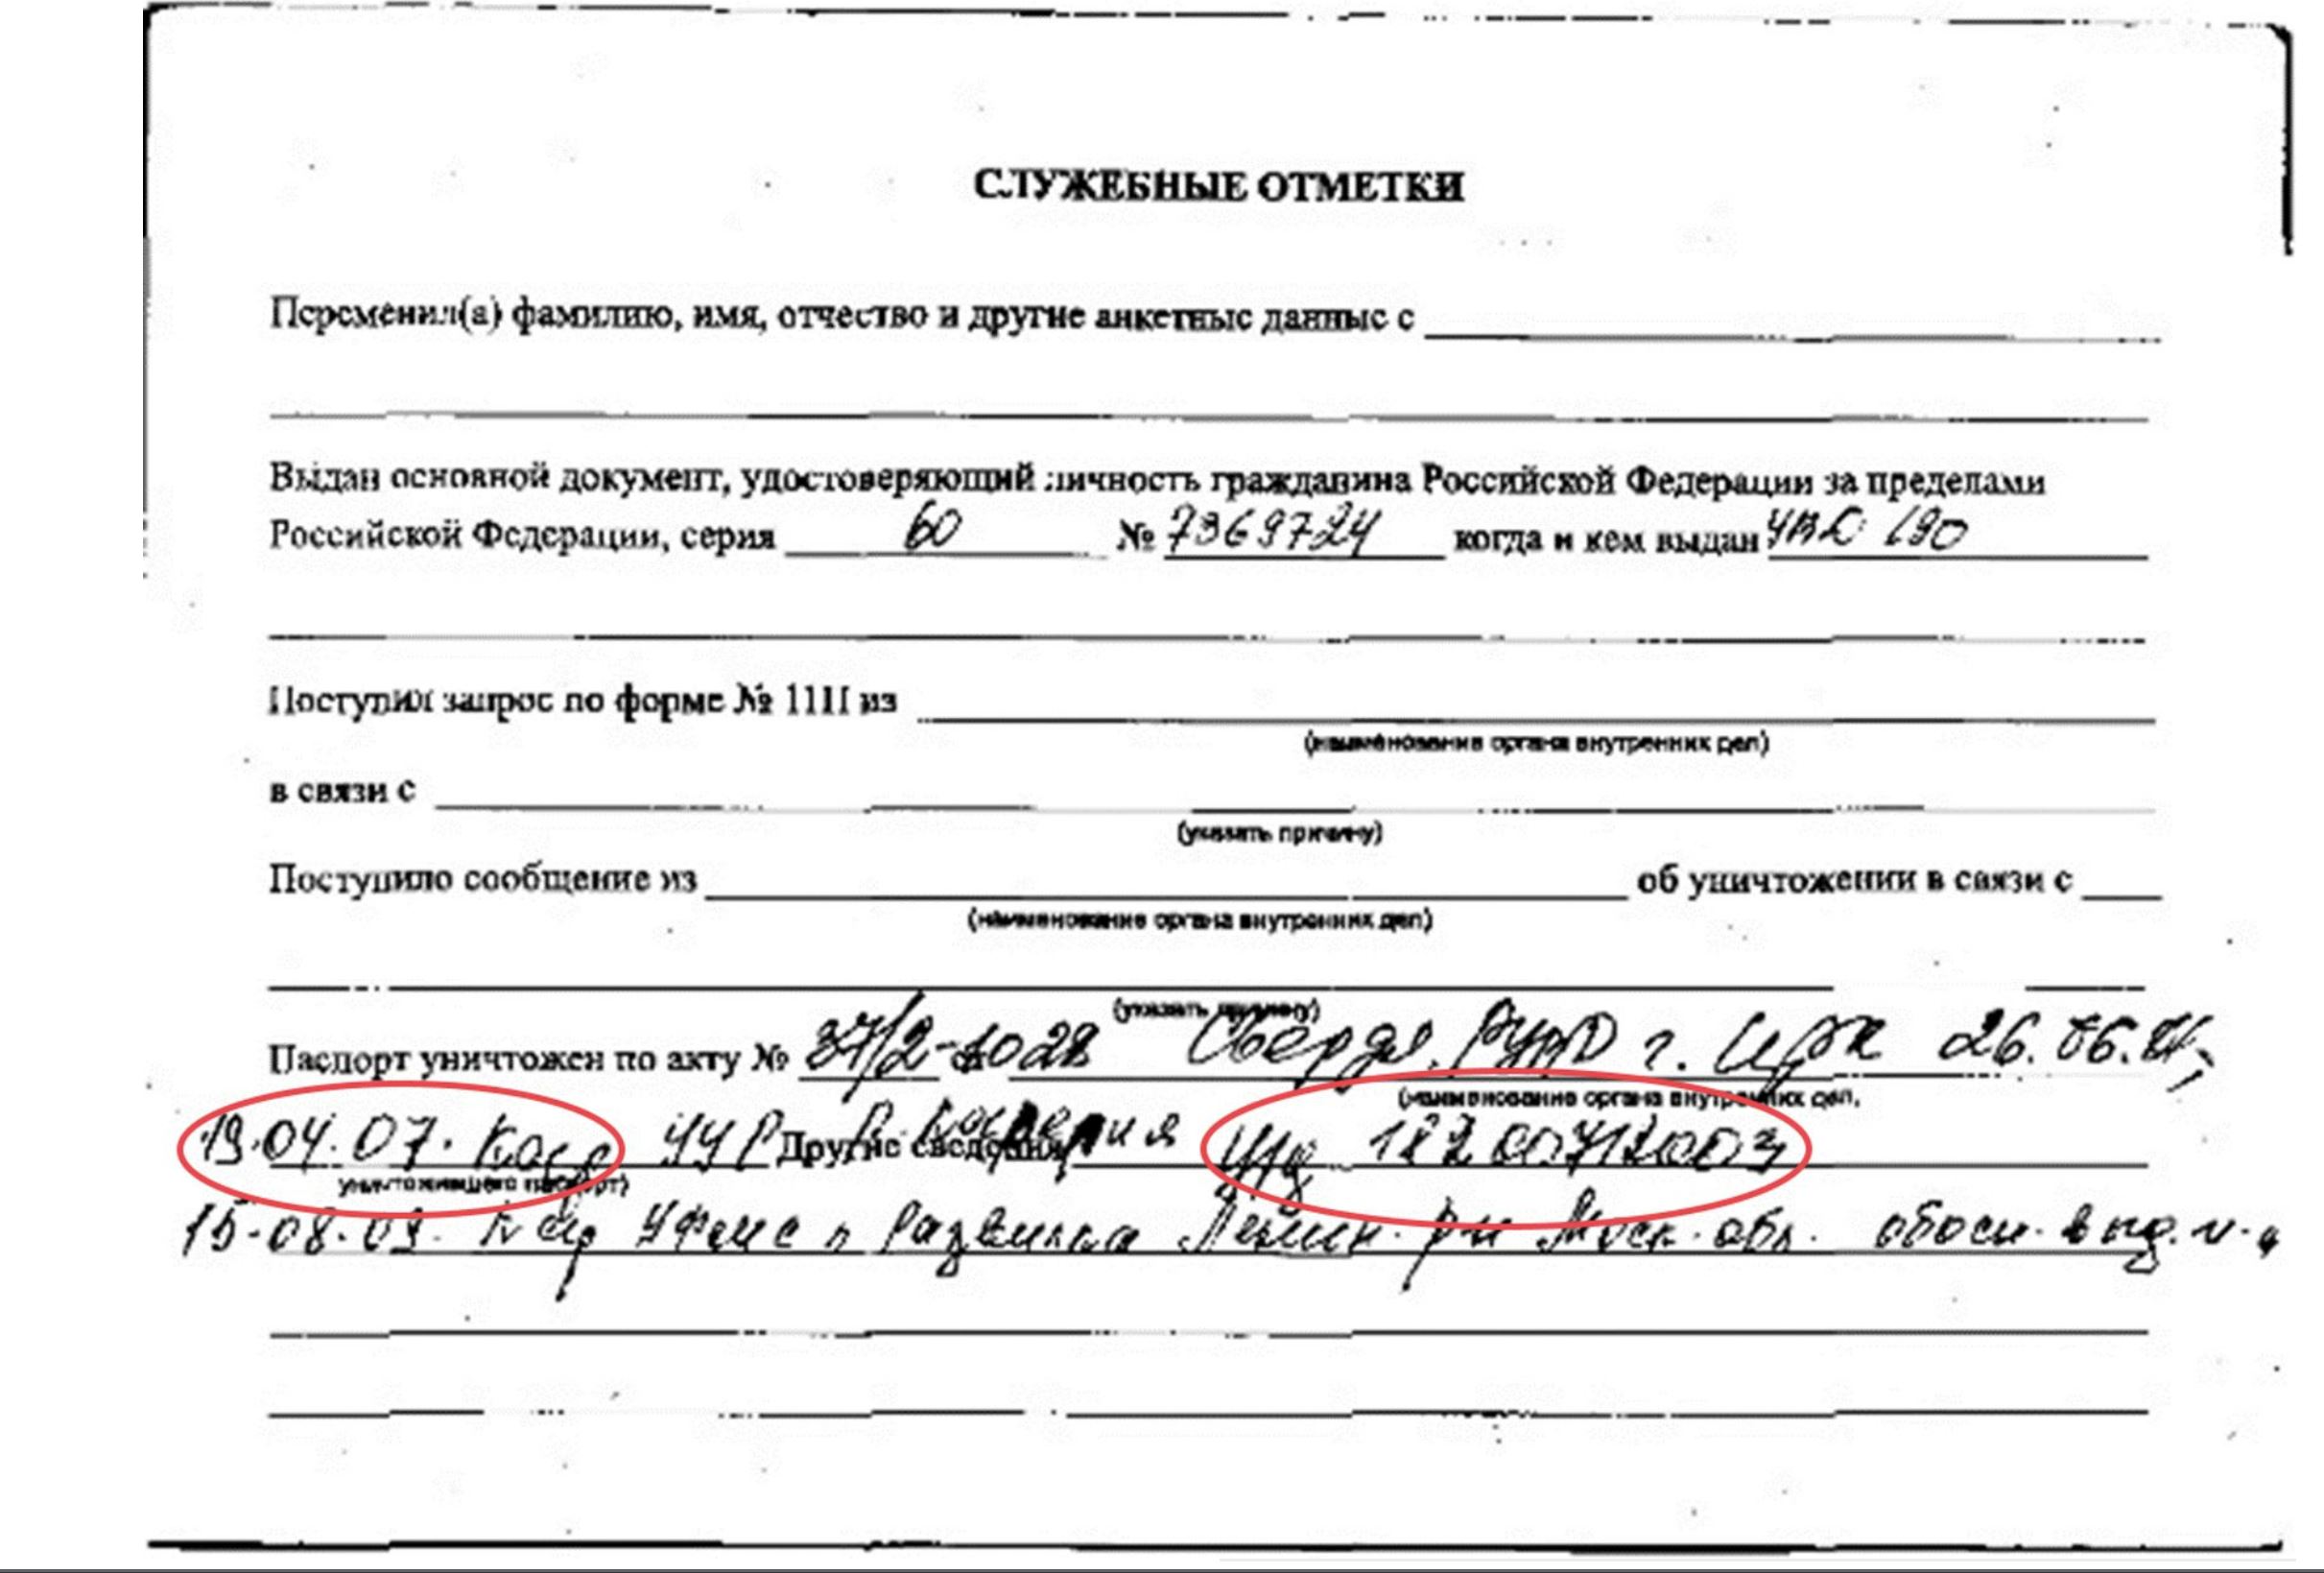 СЛУЖЕБНЫЕ ОТМЕТКИ
Переменил(а) фамилию, имя, отчество и другие анкетные данные с
Выдан основной документ, удостоверяющий личность гражданина Российской Федерации за пределами
Российской Федерации, серия 60 № 7369724 когда и кем выдан УВД 690
Поступил запрос по форме № 11П из
(наименование органа внутренних дел)
в связи с
(указать причину)
Поступило сообщение из об уничтожении в связи с
(наименование органа внутренних дел)
(указать причину)
Паспорт уничтожен по акту № 37/2-1028 от Свердл. РУВД г. Ирк 26.06.
(наименование органа внутренних дел,
19.04.07. УУР Другие сведения у/д
уничтожившего паспорт)
15.08.09. УФМС п Развилка Ленин. р-н Моск. обл. обосн. выд.